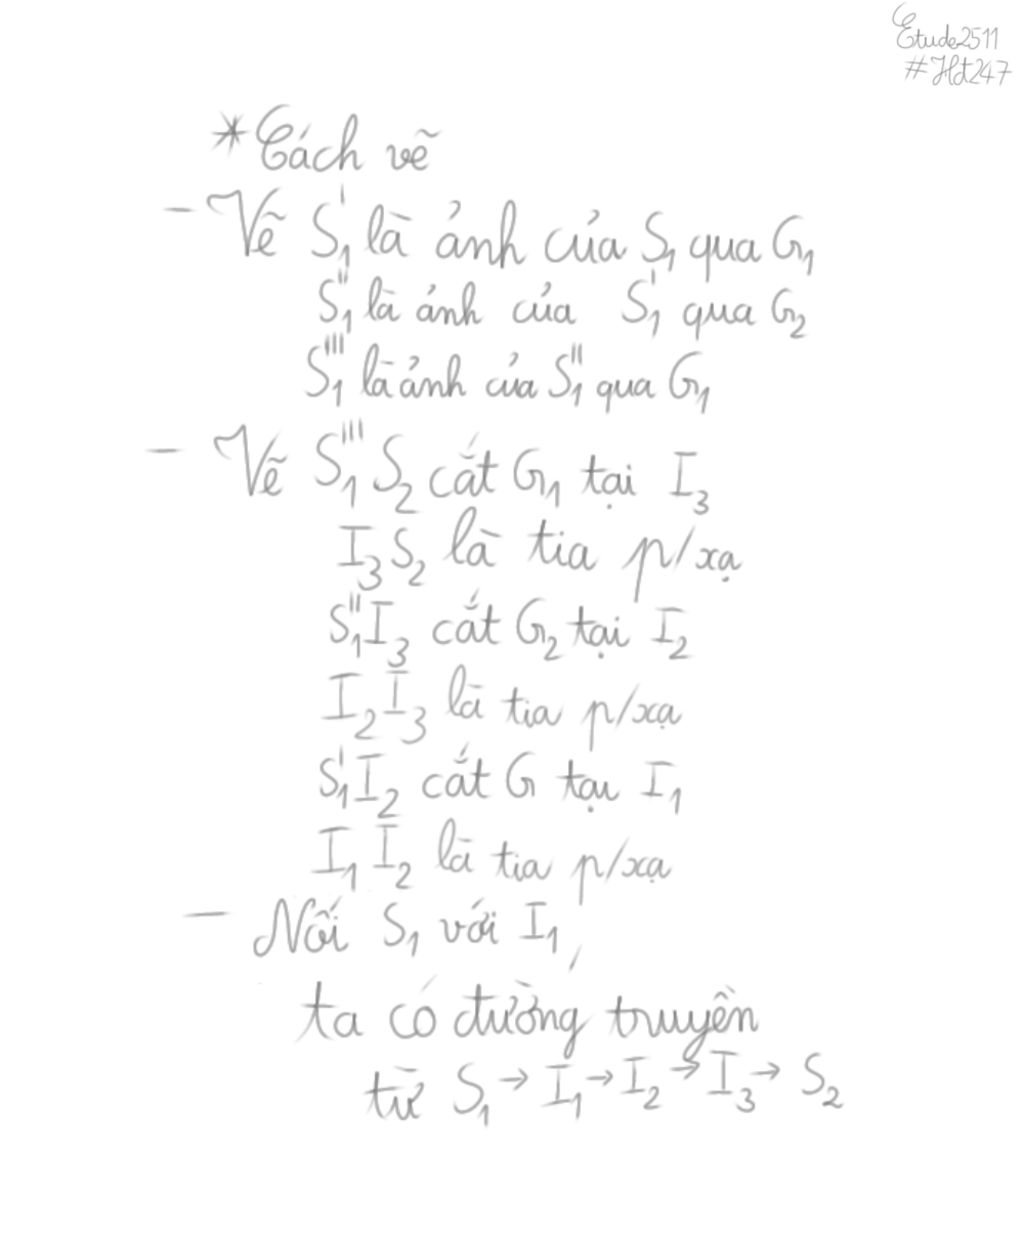 Etude2511
#Hdt247
*Cách vẽ
- Vẽ S₁' là ảnh của S₁ qua G₁
S₁'' là ảnh của S₁' qua G₂
S₁''' là ảnh của S₁'' qua G₁
- Vẽ S₁''' S₂ cắt G₁ tại I₃
I₃S₂ là tia p/xạ
S₁''I₃ cắt G₂ tại I₂
I₂I₃ là tia p/xạ
S₁'I₂ cắt G tại I₁
I₁I₂ là tia p/xạ
- Nối S₁ với I₁,
ta có đường truyền
từ S₁ → I₁ → I₂ → I₃ → S₂